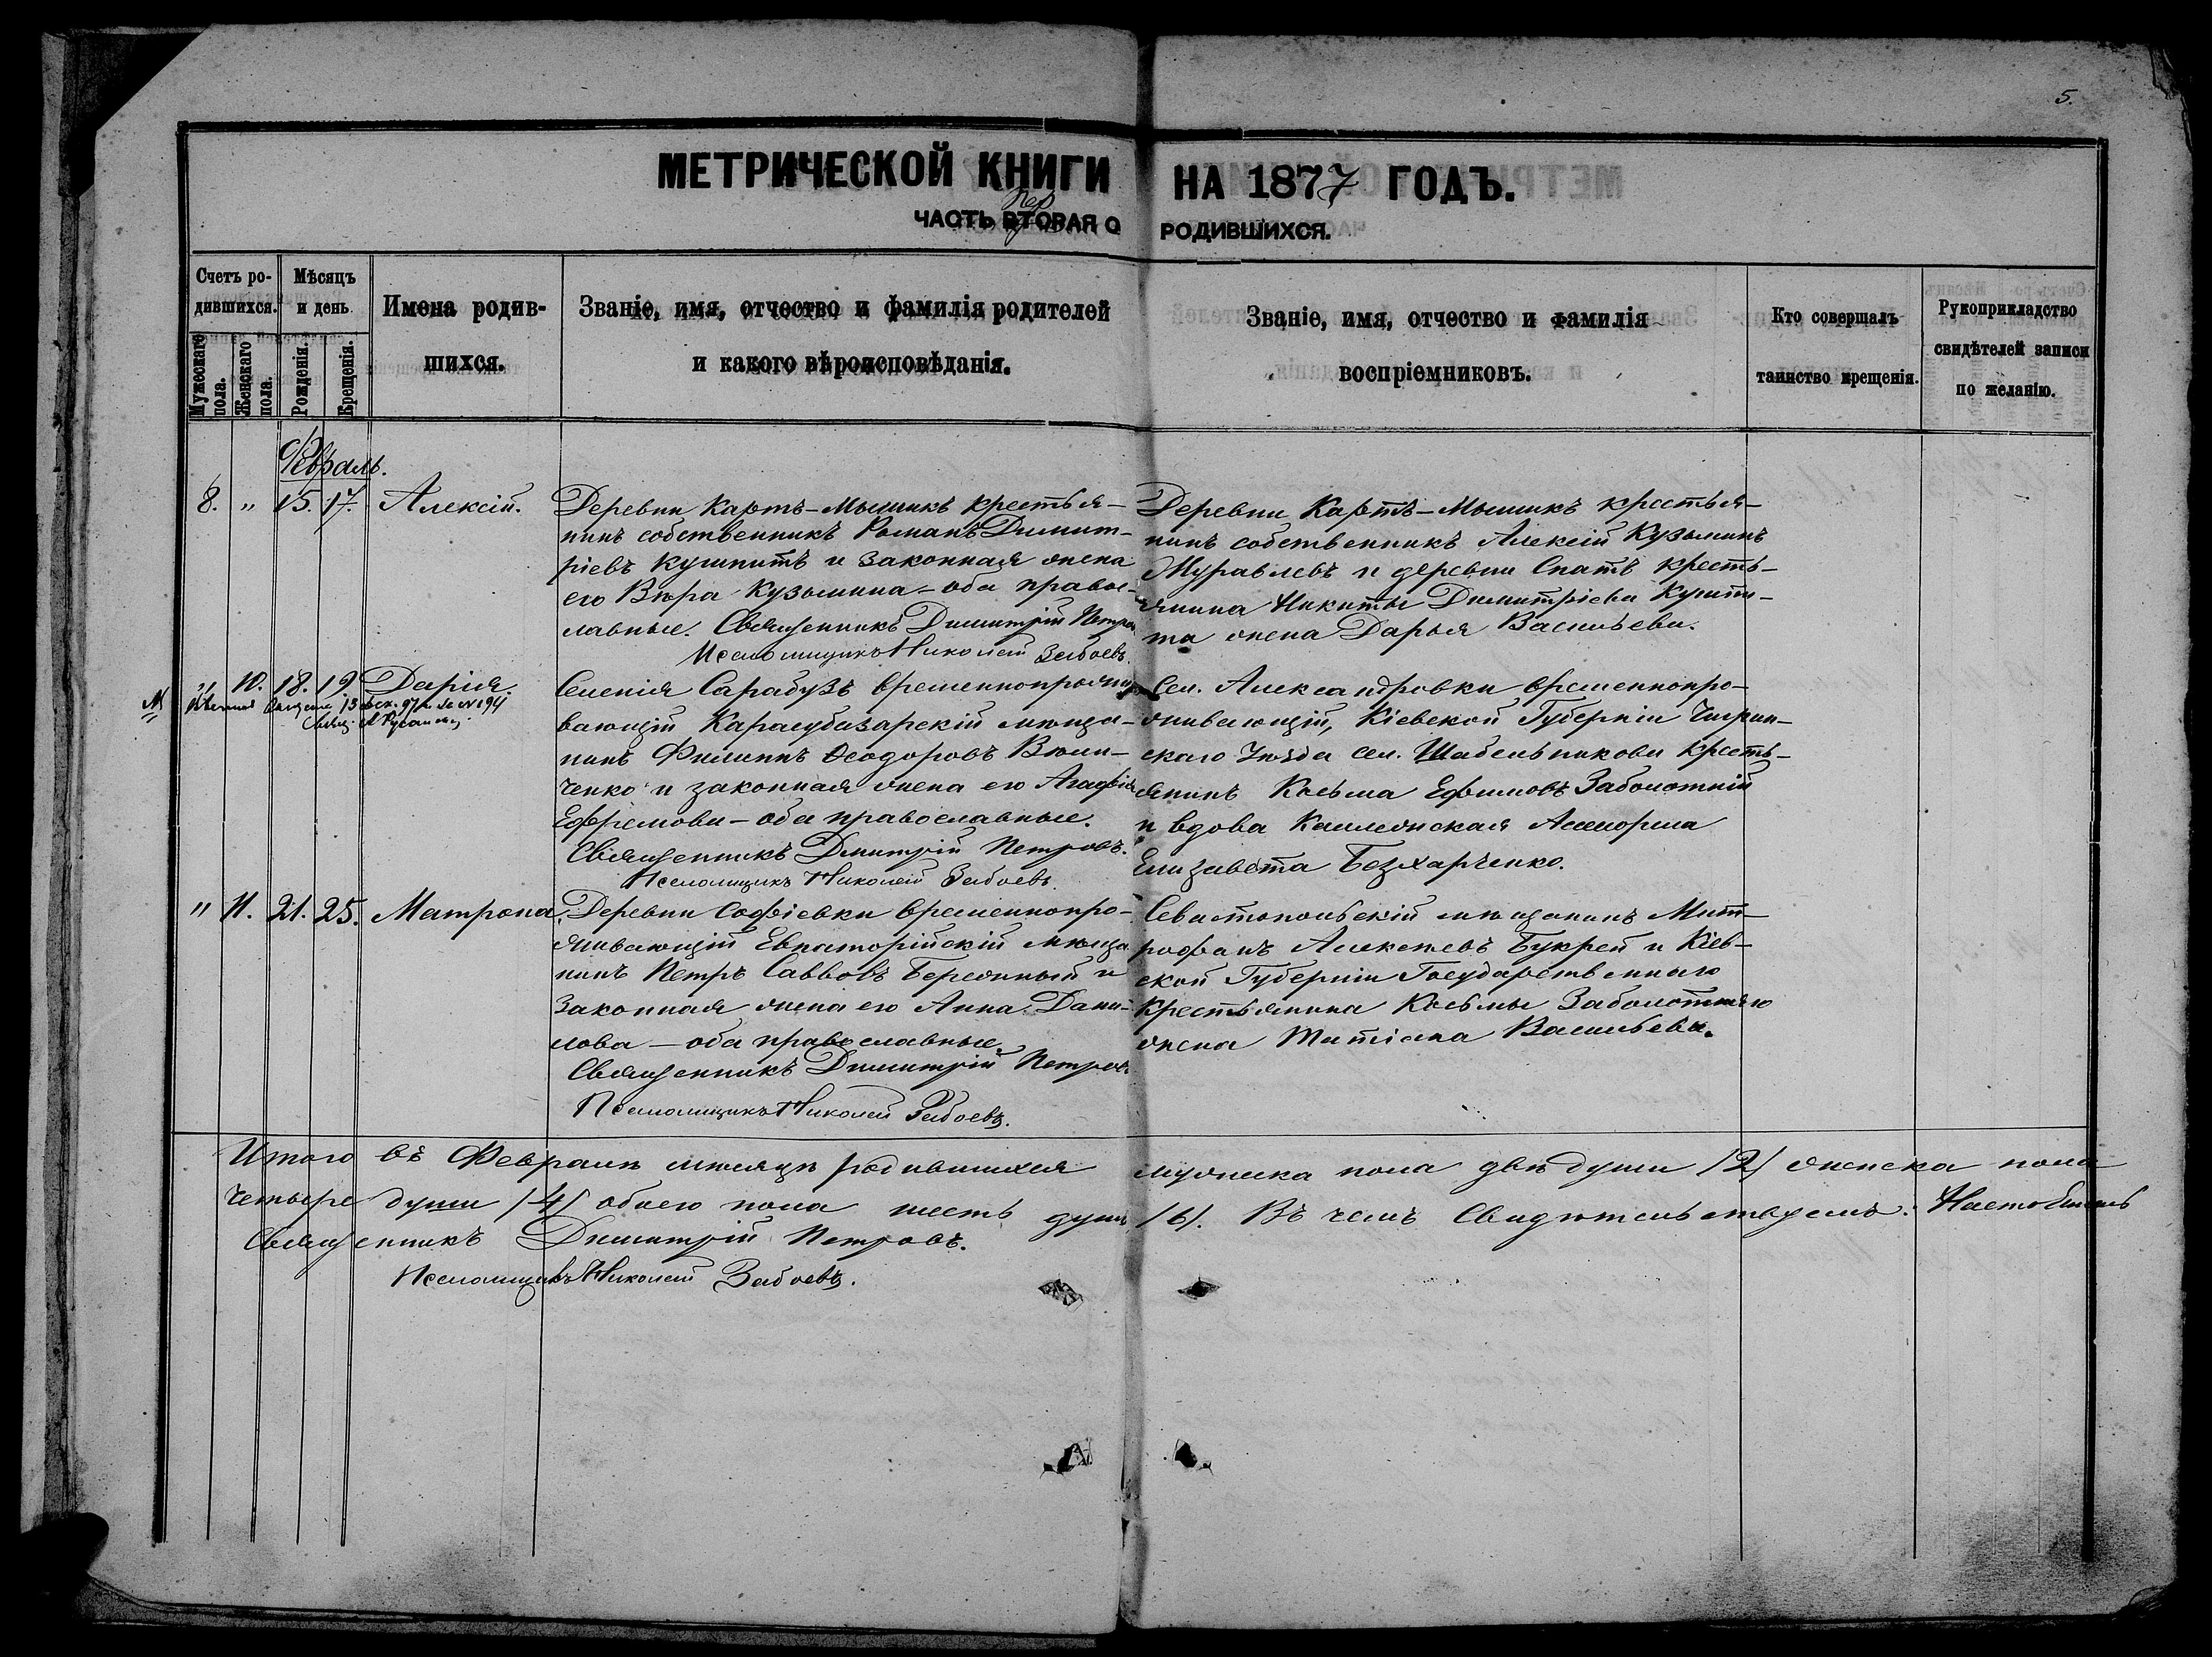 5.
МЕТРИЧЕСКОЙ КНИГИ НА 1877 ГОДЪ.
Пер
ЧАСТЬ ВТОРАЯ О РОДИВШИХСЯ.
Счетъ ро-
дившихся.
Мужескаго пола.
Женскаго пола.
Мѣсяцъ
и день
Рожденія.
Крещенія.
Имена родив-
шихся.
Званіе, имя, отчество и фамилія родителей
и какого вѣроисповѣданія.
Званіе, имя, отчество и фамилія
воспріемниковъ.
Кто совершалъ
таинство крещенія.
Рукоприкладство
свидѣтелей записи
по желанію.
Февраль.
8. " 15. 17. Алексій.
Деревни Картъ-Мышикъ крестья-
нинъ собственникъ Романъ Димит-
ріевъ Кушнитъ и законная жена
его Вѣра Кузьмина - оба правос-
лавные. Священникъ Димитрій Петровъ
Псаломщикъ Николай Забоевъ.
Деревни Картъ-Мышикъ крестья-
нинъ собственникъ Алексій Кузьминъ
Муравлевъ и деревни Спатъ кресть-
янина Никиты Димитріева Кушни-
та жена Дарья Васильева.
" 10. 18. 19. Дарія.
Селенія Сарабузъ временнопрожи-
вающій Карасубазарскій мѣща-
нинъ Филиппъ Ѳеодоровъ Вюни-
ченко и законная жена его Агафія
Ефремова - оба православные.
Священникъ Дмитрій Петровъ.
Псаломщикъ Николай Забоевъ.
Сел. Александровки временнопро-
живающій, Кіевской Губерніи Чигрин-
скаго Уѣзда сел. Шабельникова кресть-
янинъ Косьма Ефимовъ Заболотній
и вдова
Елизавета Безхарченко.
" 11. 21. 25. Матрона.
Деревни Софіевки временнопро-
живающій Евпаторійскій мѣща
нинъ Петръ Саввовъ Бережный и
законная жена его Анна Дани-
лова - оба православные.
Священникъ Димитрій Петровъ
Псаломщикъ Николай Забоевъ.
Севастопольскій мѣщанинъ Мит-
рофанъ Алексѣевъ Букрей и Кіев-
ской Губерніи Государственнаго
Крестьянина Косьмы Заболотнаго
жена Татіана Васильева.
Итого въ Февралѣ мѣсяцѣ родившихся мужеска пола двѣ души /2/ женска пола
четыре души /4/ обоего пола шесть душъ /6/. Въ чемъ свидѣтельствуемъ:
Священникъ Димитрій Петровъ.
Псаломщикъ Николай Забоевъ.